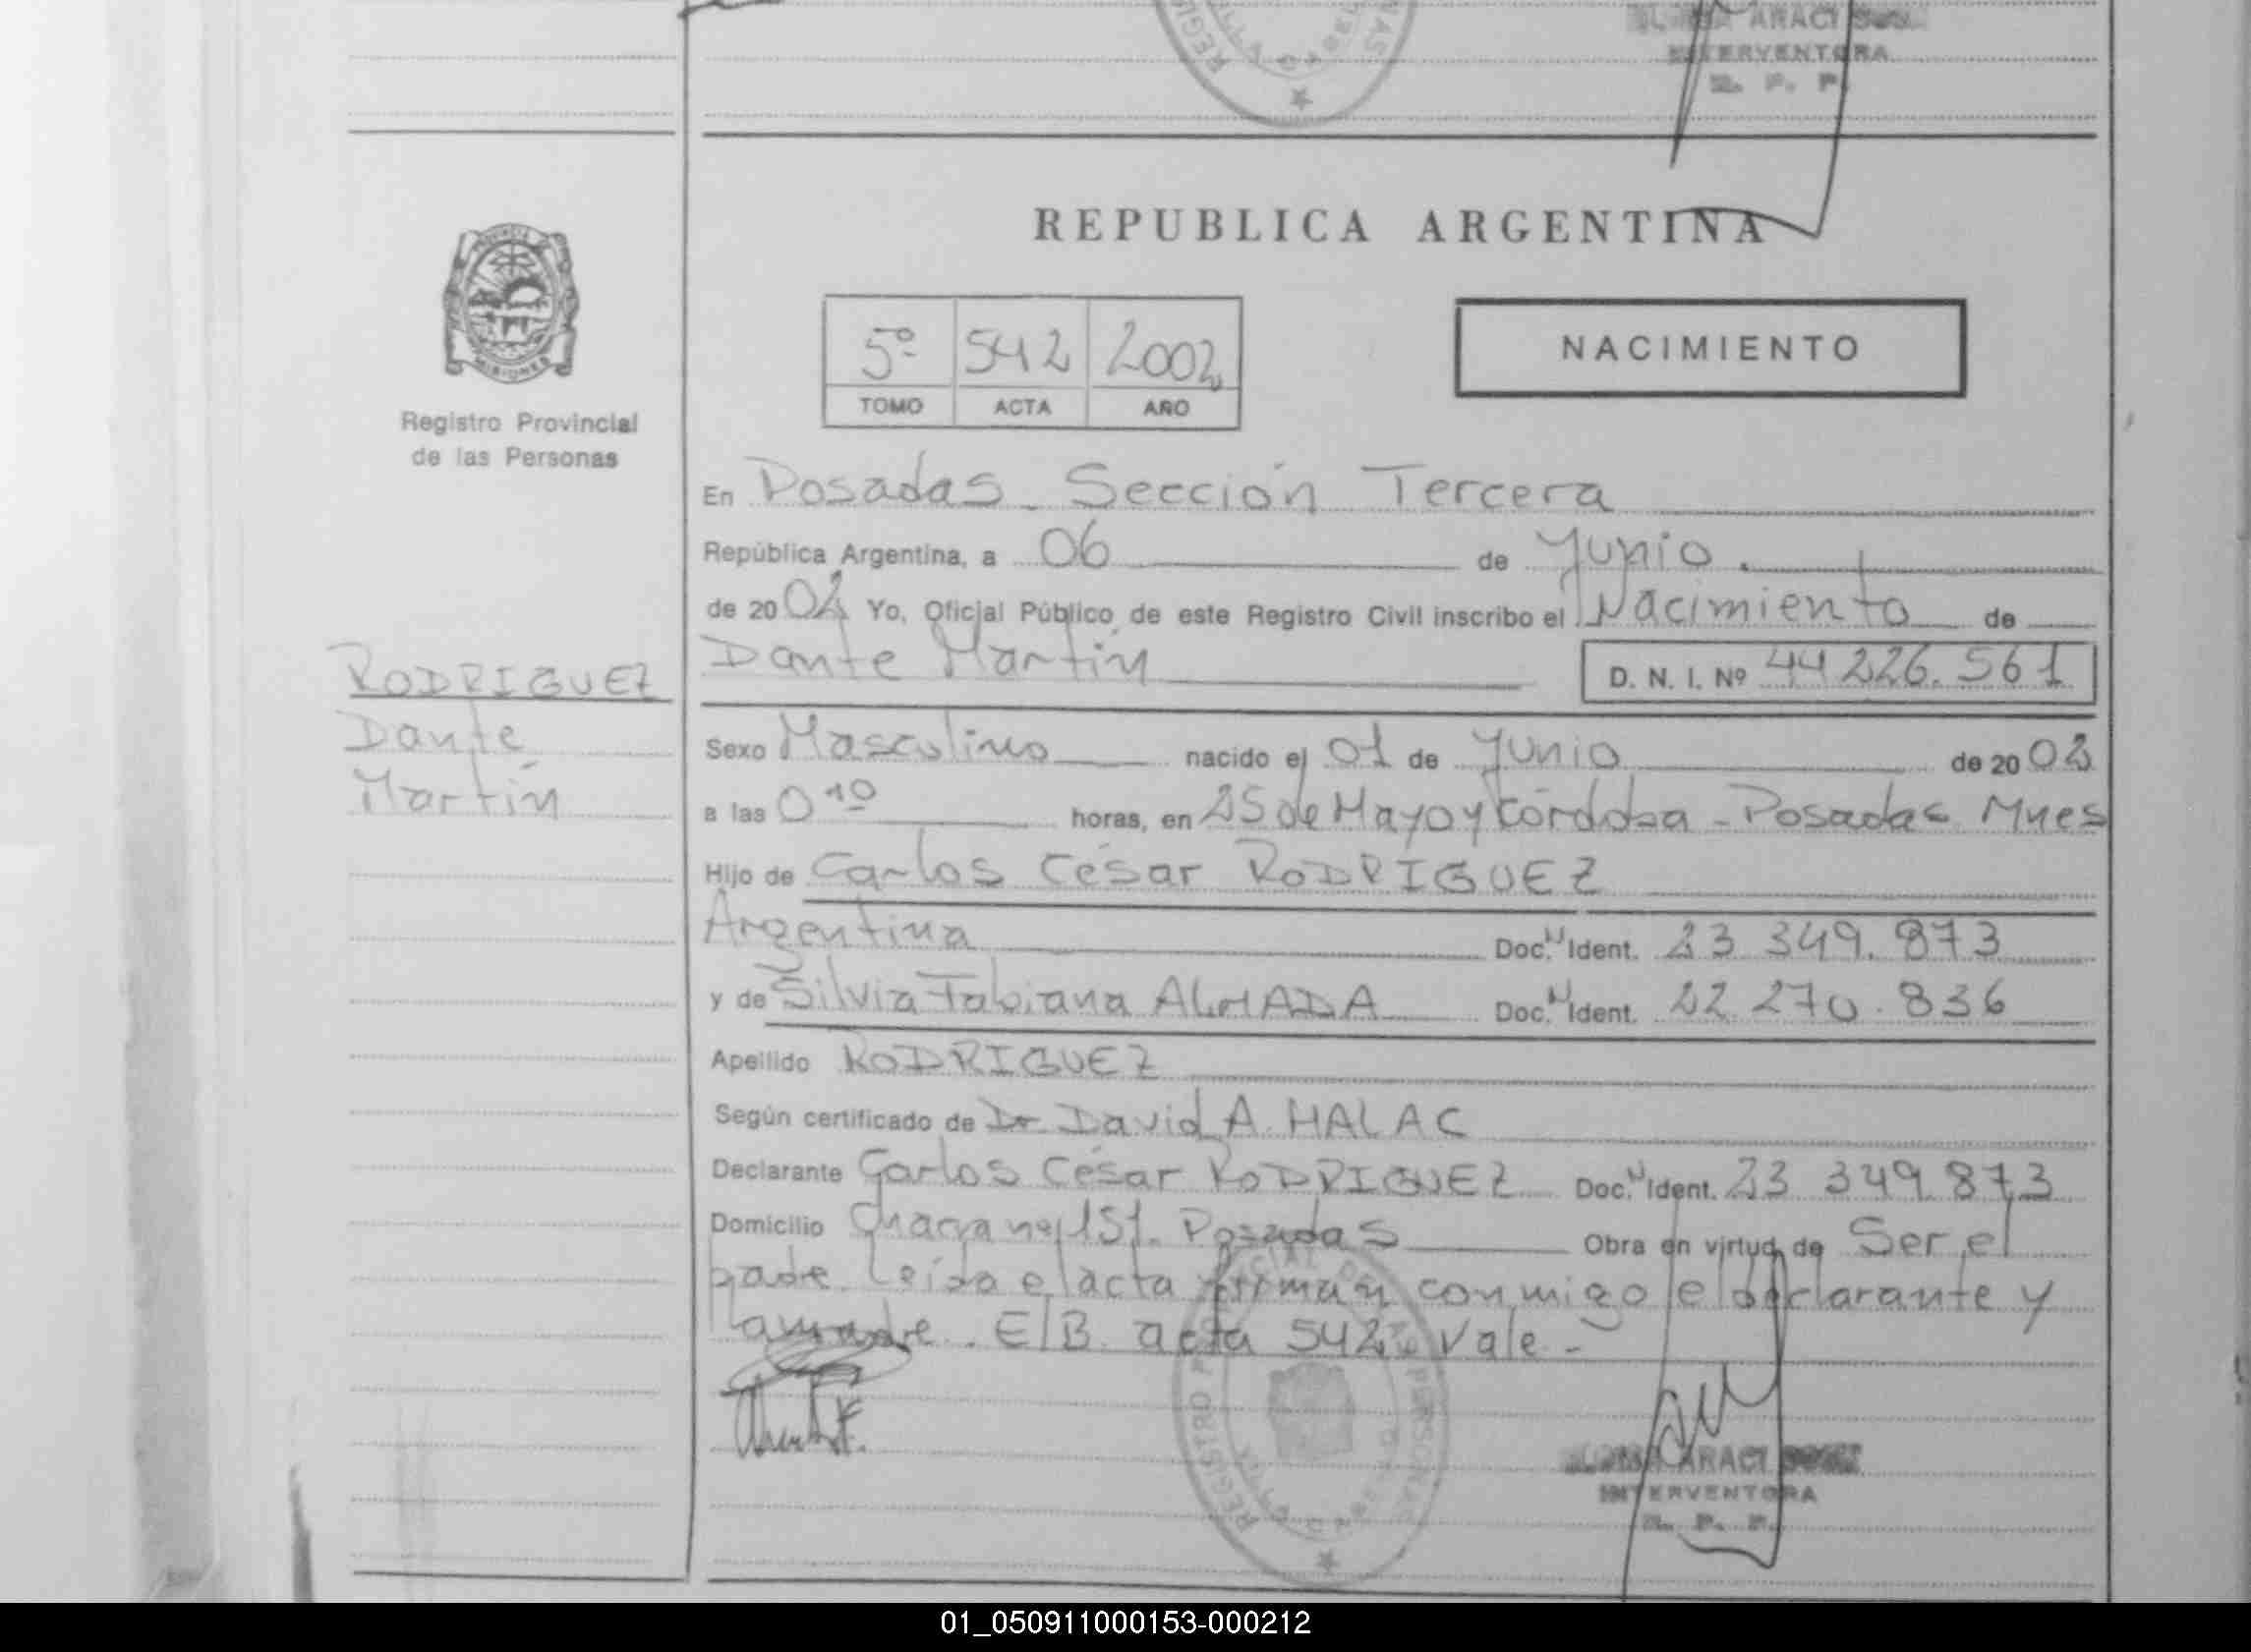 ARACI
INTERVENTORA
R. P. P.
REPUBLICA ARGENTINA
PROVINCIA DE MISIONES
Registro Provincial
de las Personas
5º 542 2002
TOMO ACTA AÑO
NACIMIENTO
En Posadas - Sección Tercera
República Argentina, a 06 de Junio.
de 2002 Yo, Oficial Público de este Registro Civil inscribo el Nacimiento de
Dante Martín D. N. I. Nº 44 226.561
RODRIGUEZ
Dante
Martín
Sexo Masculino nacido el 01 de Junio de 2002
a las 0 10 horas, en 25 de Mayo y Córdoba - Posadas Mnes
Hijo de Carlos César RODRIGUEZ
Argentina Doc. N Ident. 23 349.873
y de Silvia Fabiana ALMADA Doc. N Ident. 22 270.836
Apellido RODRIGUEZ
Según certificado de Dr David A. HALAC
Declarante Carlos César RODRIGUEZ Doc. N Ident. 23 349.873
Domicilio 151. Posadas Obra en virtud de Ser el
padre. Leída el acta firman conmigo el declarante y
la madre. E/B. acta 542 Vale -
REGISTRO PROVINCIAL DE LAS PERSONAS
ARACI
INTERVENTORA
R. P. P.
01_050911000153-000212